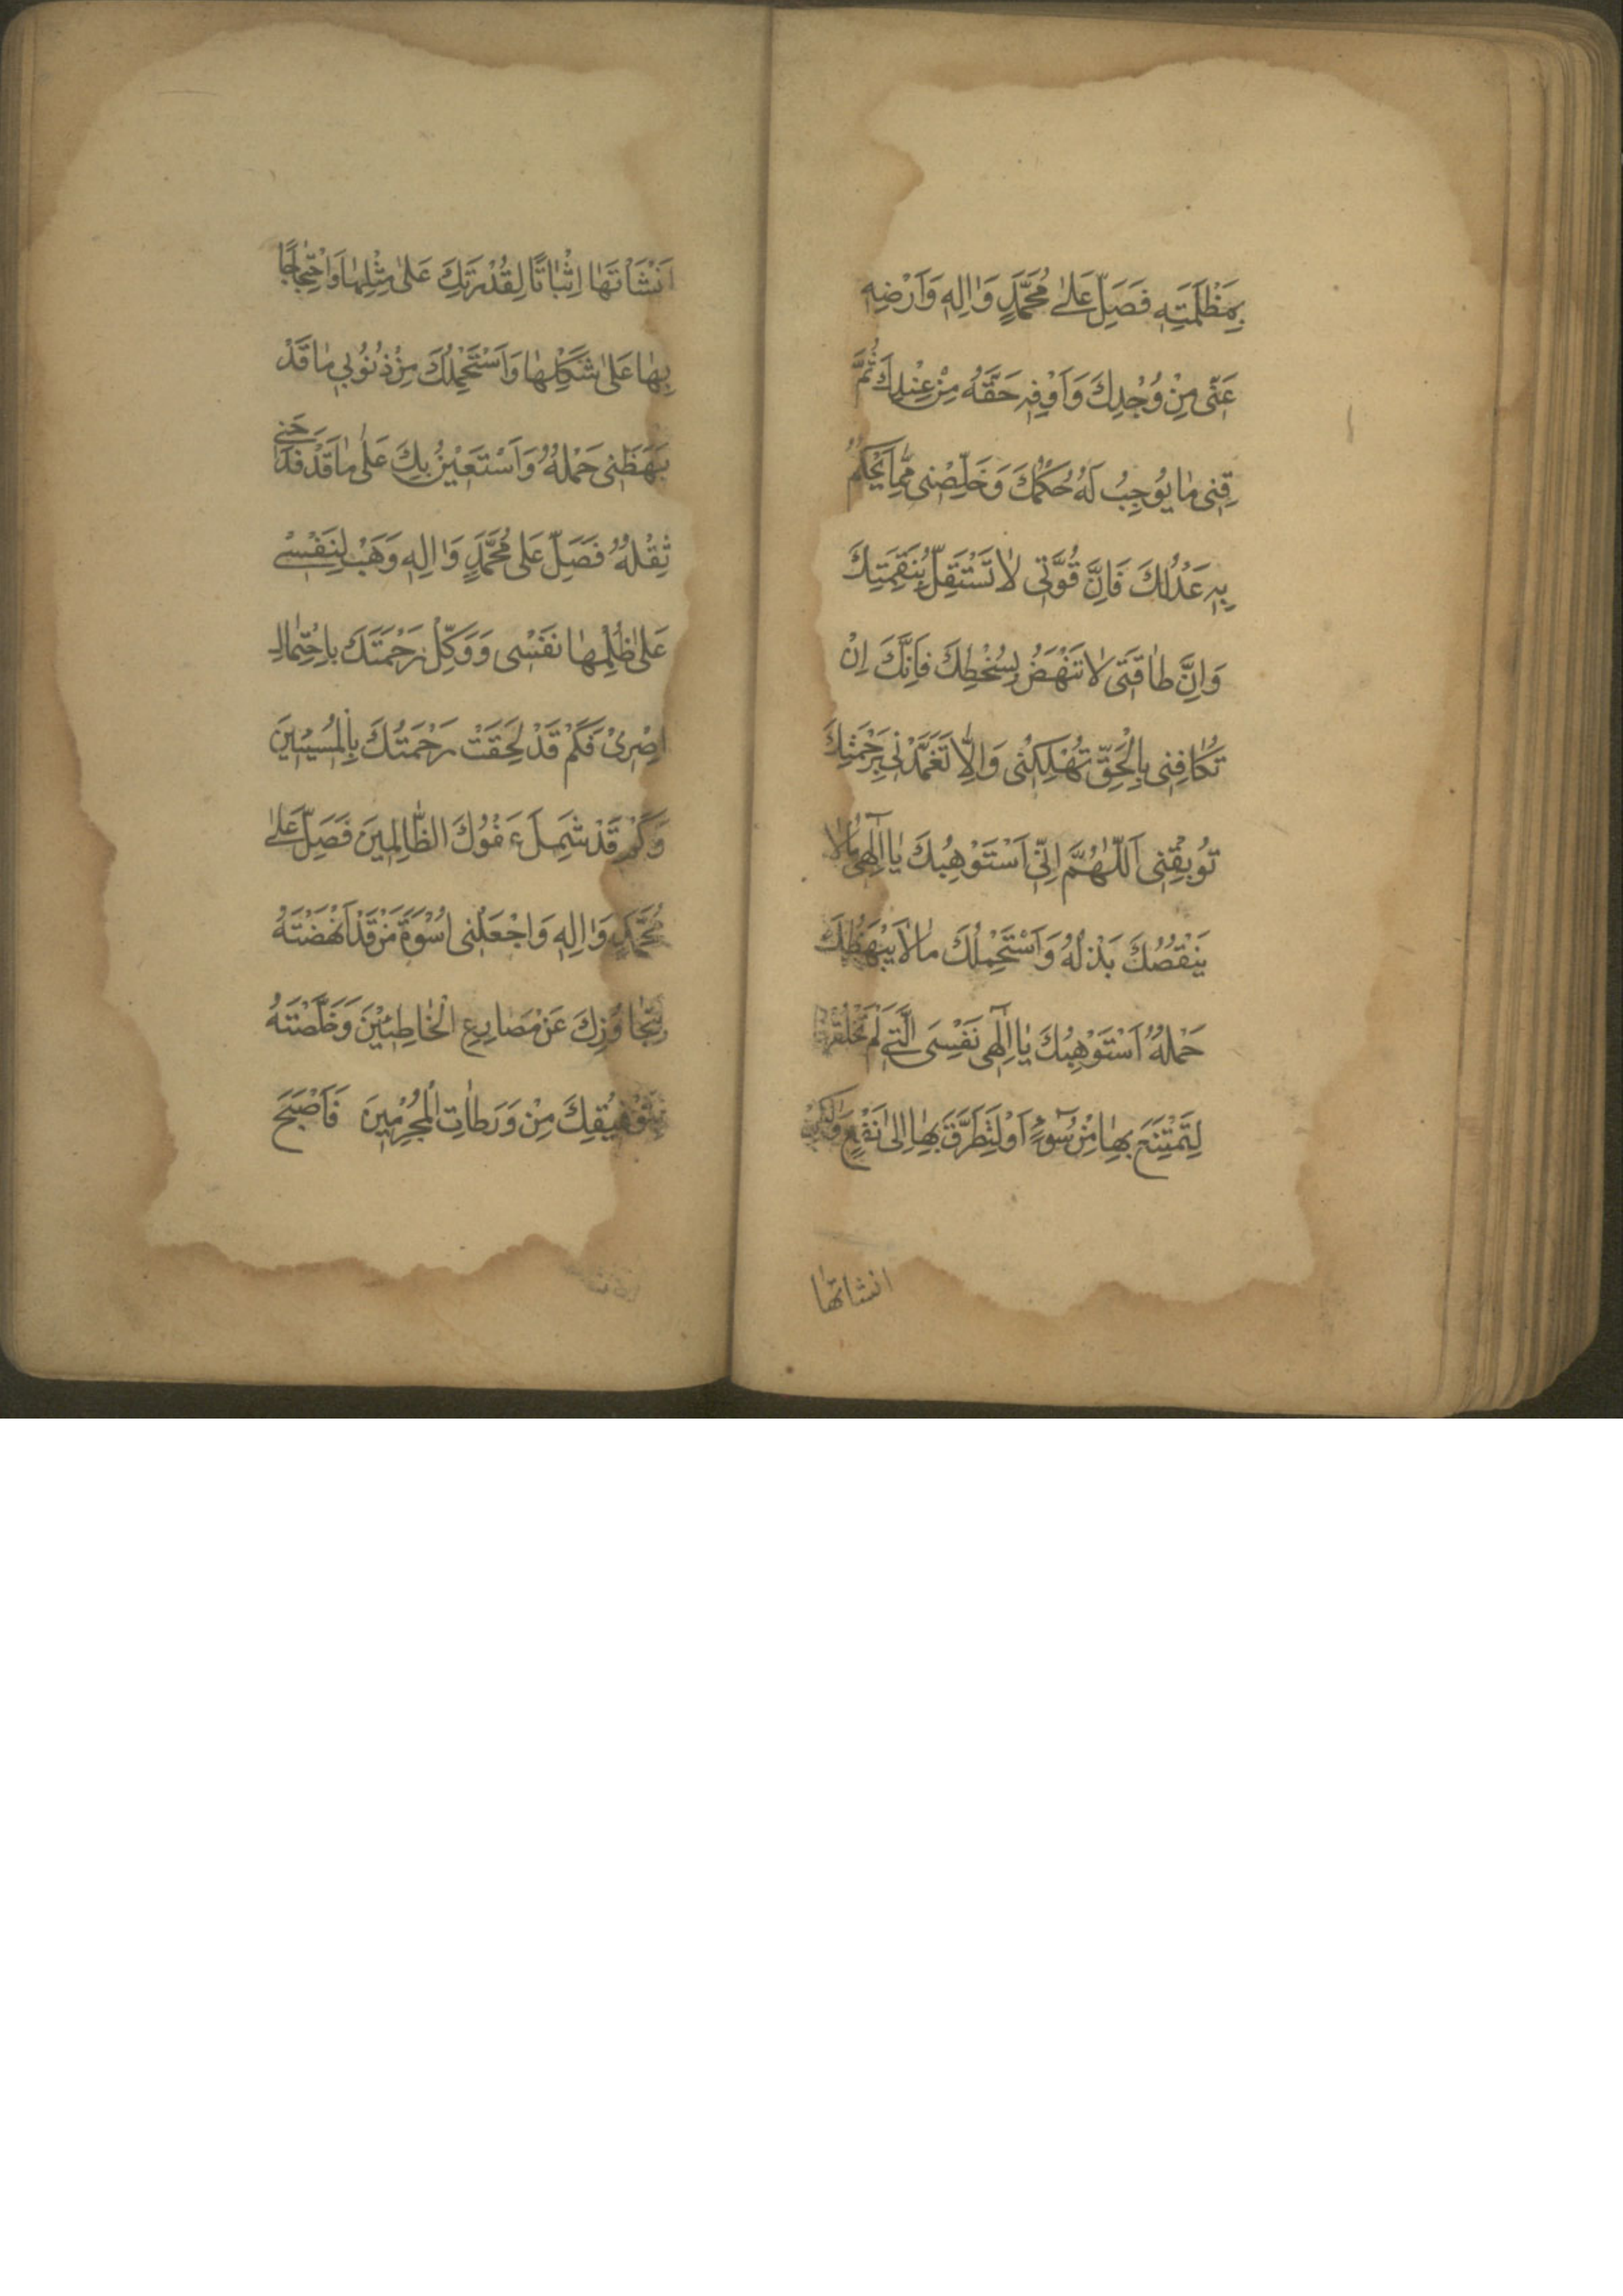 بِمَظْلَمَتِهِ فَصَلِّ عَلٰى مُحَمَّدٍ وَاٰلِهِ وَاَرْضِهِ
عَنّٰى مِنْ وُجْدِكَ وَاَوْفِهِ حَقَّهُ مِنْ عِنْدِكَ ثُمَّ
قِنِى مٰا يُوجِبُ لَهُ حُكْمُكَ وَخَلِّصْنِى مِمّٰا يَحْكُمُ
بِهِ عَدْلُكَ فَاِنَّ قُوَّتِى لٰا تَسْتَقِلُّ بِنَقِمَتِكَ
وَاِنَّ طٰاقَتِى لٰا تَنْهَضُ بِسُخْطِكَ فَاِنَّكَ اِنْ
تُكٰافِنِى بِالْحَقِّ تُهْلِكْنِى وَاِلّٰا تَغَمَّدْنِى بِرَحْمَتِكَ
تُوبِقْنِى اَللّٰهُمَّ اِنِّى اَسْتَوْهِبُكَ يٰا اِلٰهِى مٰالٰا
يَنْقُصُكَ بَذْلُهُ وَاَسْتَحْمِلُكَ مٰالٰا يَبْهَظُكَ
حَمْلُهُ اَسْتَوْهِبُكَ يٰا اِلٰهِى نَفْسِىَ الَّتِى لَمْ تَخْلُقْهٰا
لِتَمْتَنِعَ بِهٰا مِنْ سُوءٍ اَوْ لِتَطَرَّقَ بِهٰا اِلٰى نَفْعٍ وَلٰكِنْ
انشاتها
اَنْشَاْتَهٰا اِثْبٰاتًا لِقُدْرَتِكَ عَلٰى مِثْلِهٰا وَاحْتِجٰاجًا
بِهٰا عَلٰى شَكْلِهٰا وَاَسْتَحْمِلُكَ مِنْ ذُنُوبِي مٰا قَدْ
بَهَظَنِى حَمْلُهُ وَاَسْتَعِيْنُ بِكَ عَلٰى مٰا قَدْ فَدَحَنِى
ثِقْلُهُ فَصَلِّ عَلٰى مُحَمَّدٍ وَاٰلِهِ وَهَبْ لِنَفْسِى
عَلٰى ظُلْمِهٰا نَفْسِى وَوَكِّلْ رَحْمَتَكَ بِاحْتِمٰالِ
اِصْرِىْ فَكَمْ قَدْ لَحِقَتْ رَحْمَتُكَ بِالْمُسِيْئِيْنَ
وَكَمْ قَدْ شَمِلَ عَفْوُكَ الظّٰالِمِيْنَ فَصَلِّ عَلٰى
مُحَمَّدٍ وَاٰلِهِ وَاجْعَلْنِى اُسْوَةَ مَنْ قَدْ اَنْهَضْتَهُ
بِتَجٰاوُزِكَ عَنْ مَصٰارِعِ الْخٰاطِئِيْنَ وَخَلَّصْتَهُ
بِتَوْفِيْقِكَ مِنْ وَرَطٰاتِ الْمُجْرِمِيْنَ فَاَصْبَحَ